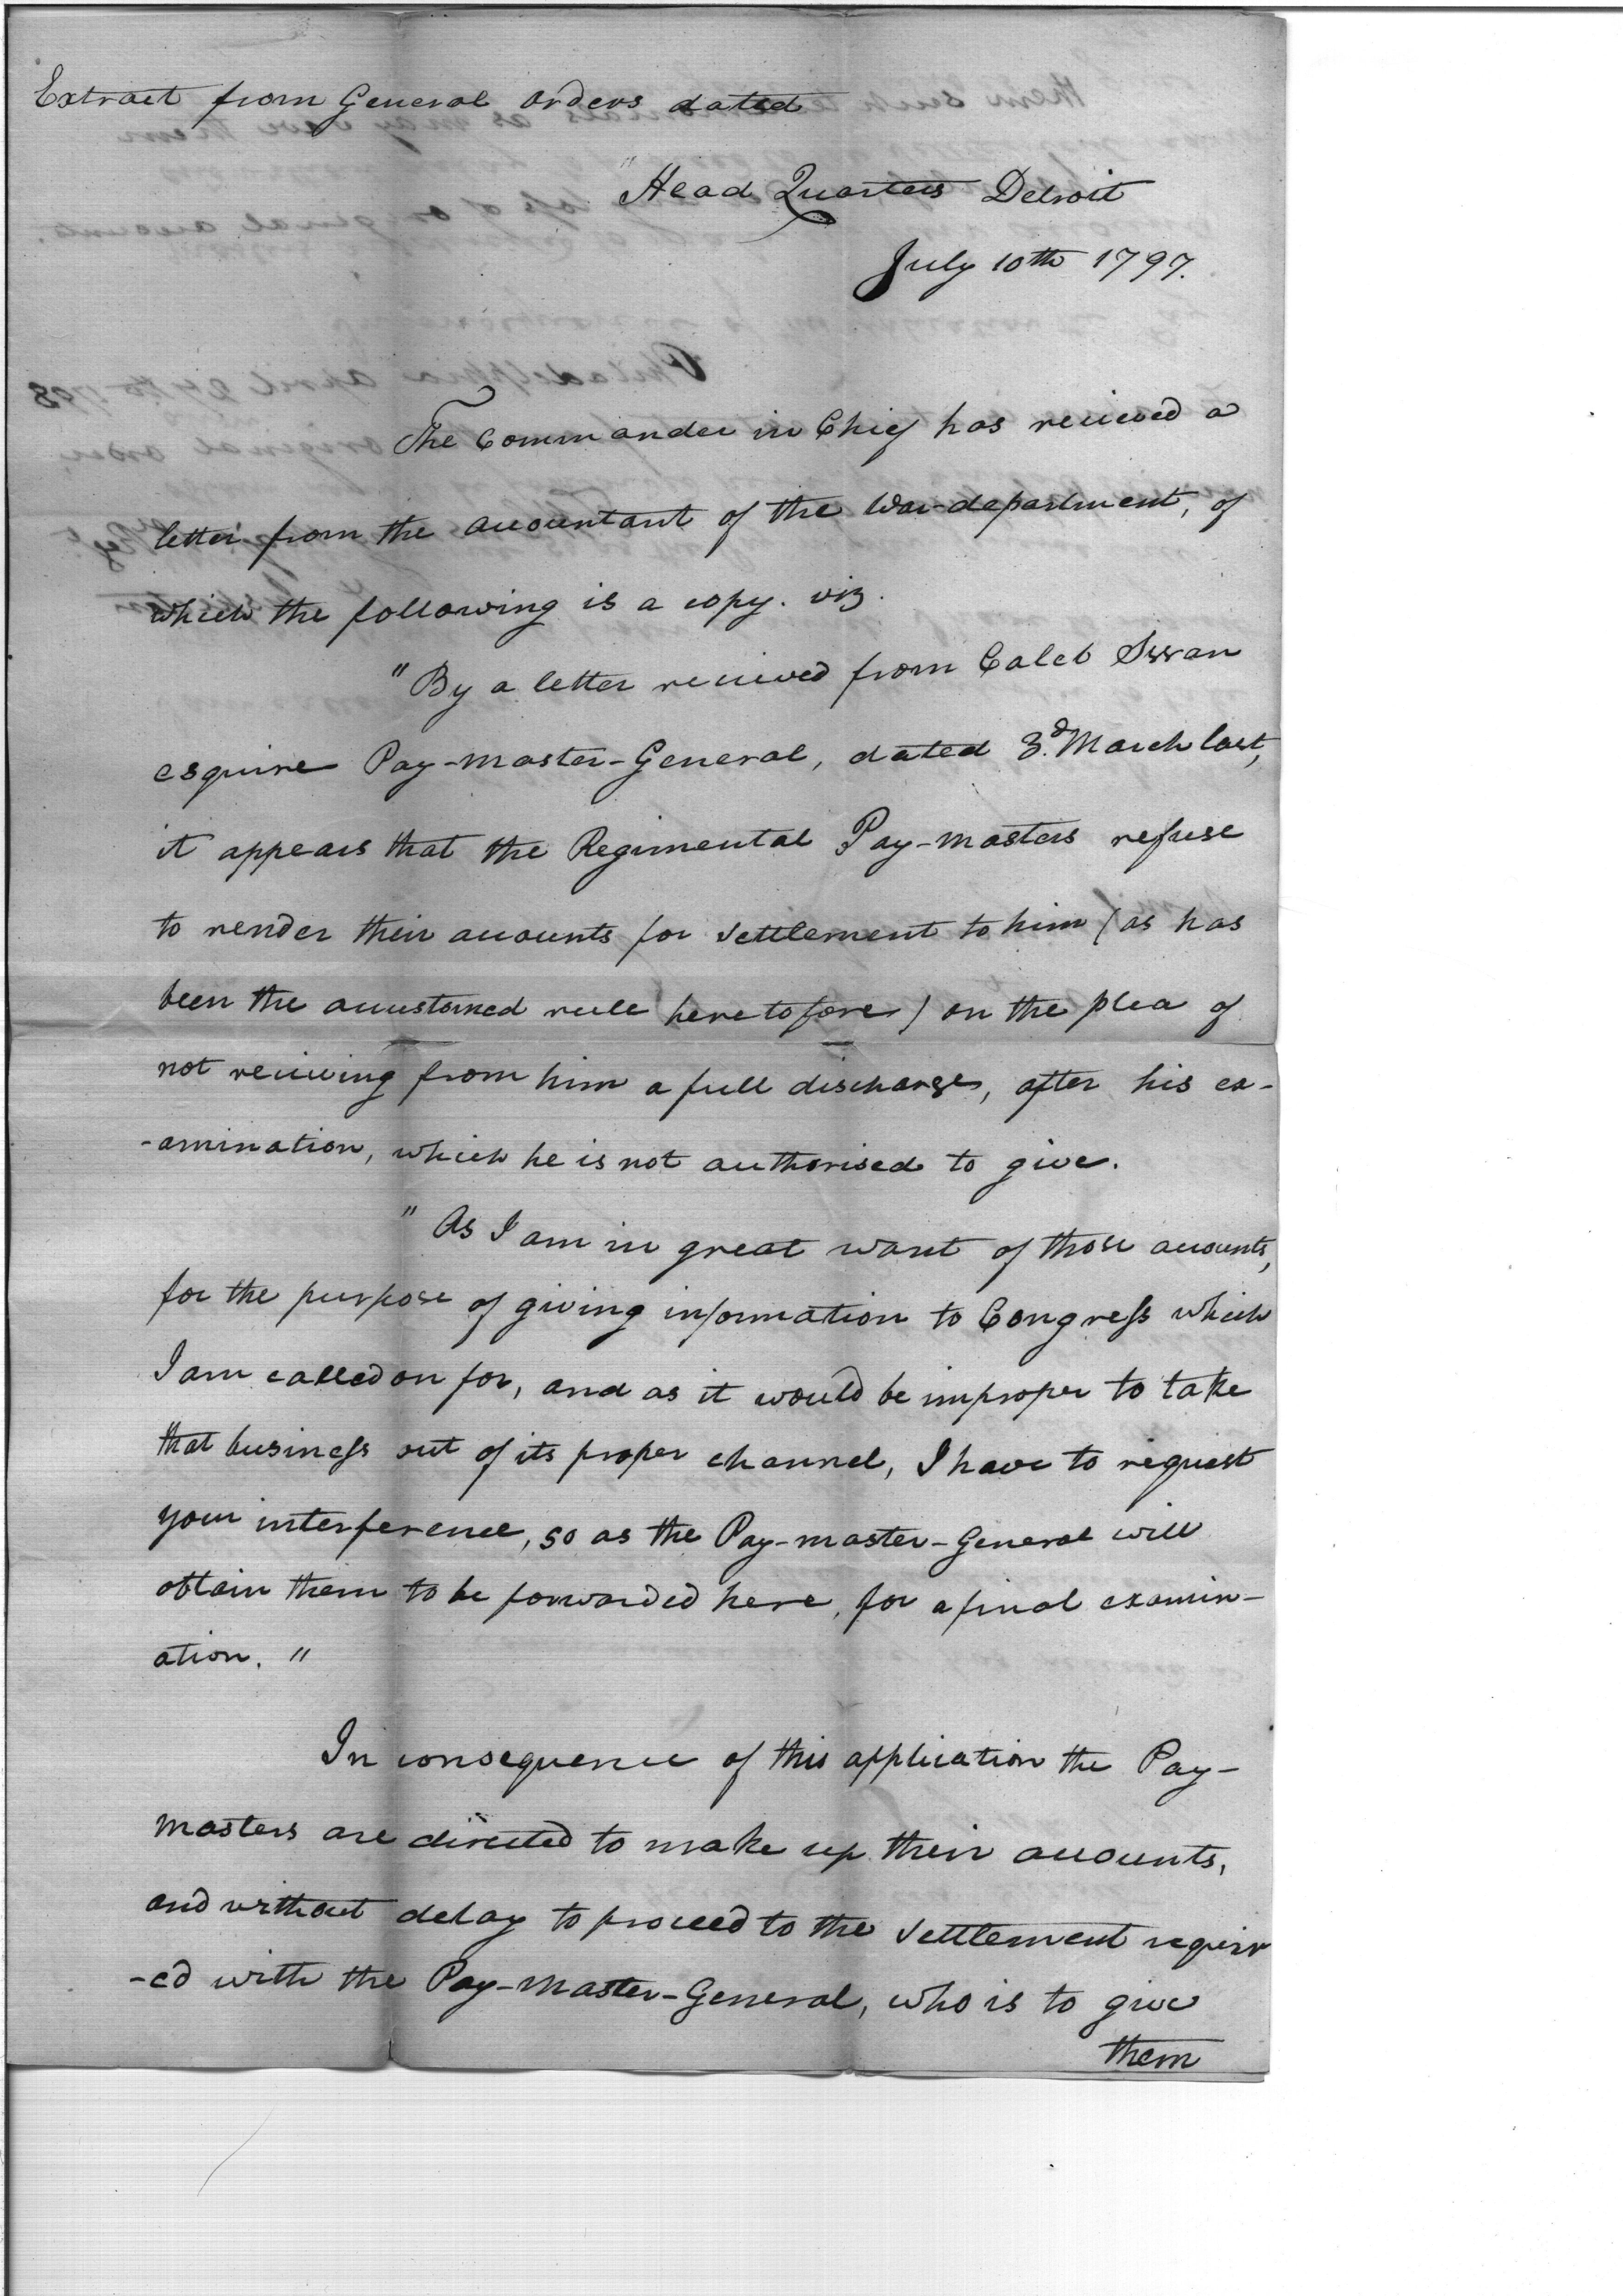 Extract from General orders dated
"Head Quarters Detroit
July 10th 1797.
The Commander in Chief has recieved a
letter from the accountant of the War department, of
which the following is a copy. viz.
"By a letter recieved from Caleb Swan
esquire Pay-master-General, dated 3.d March last,
it appears that the Regimental Pay-masters refuse
to render their accounts for settlement to him (as has
been the accustomed rule heretofore) on the plea of
not recieving from him a full discharge, after his ex-
-amination, which he is not authorised to give.
"As I am in great want of those accounts,
for the purpose of giving information to Congreſs which
I am called on for, and as it would be improper to take
that busineſs out of its proper channel, I have to request
your interference, so as the Pay-master-General will
obtain them to be forwarded here, for a final examin-
ation."
In consequence of this application the Pay-
masters are directed to make up their accounts,
and without delay to proceed to the settlement requir
-ed with the Pay-Master-General, who is to give
them